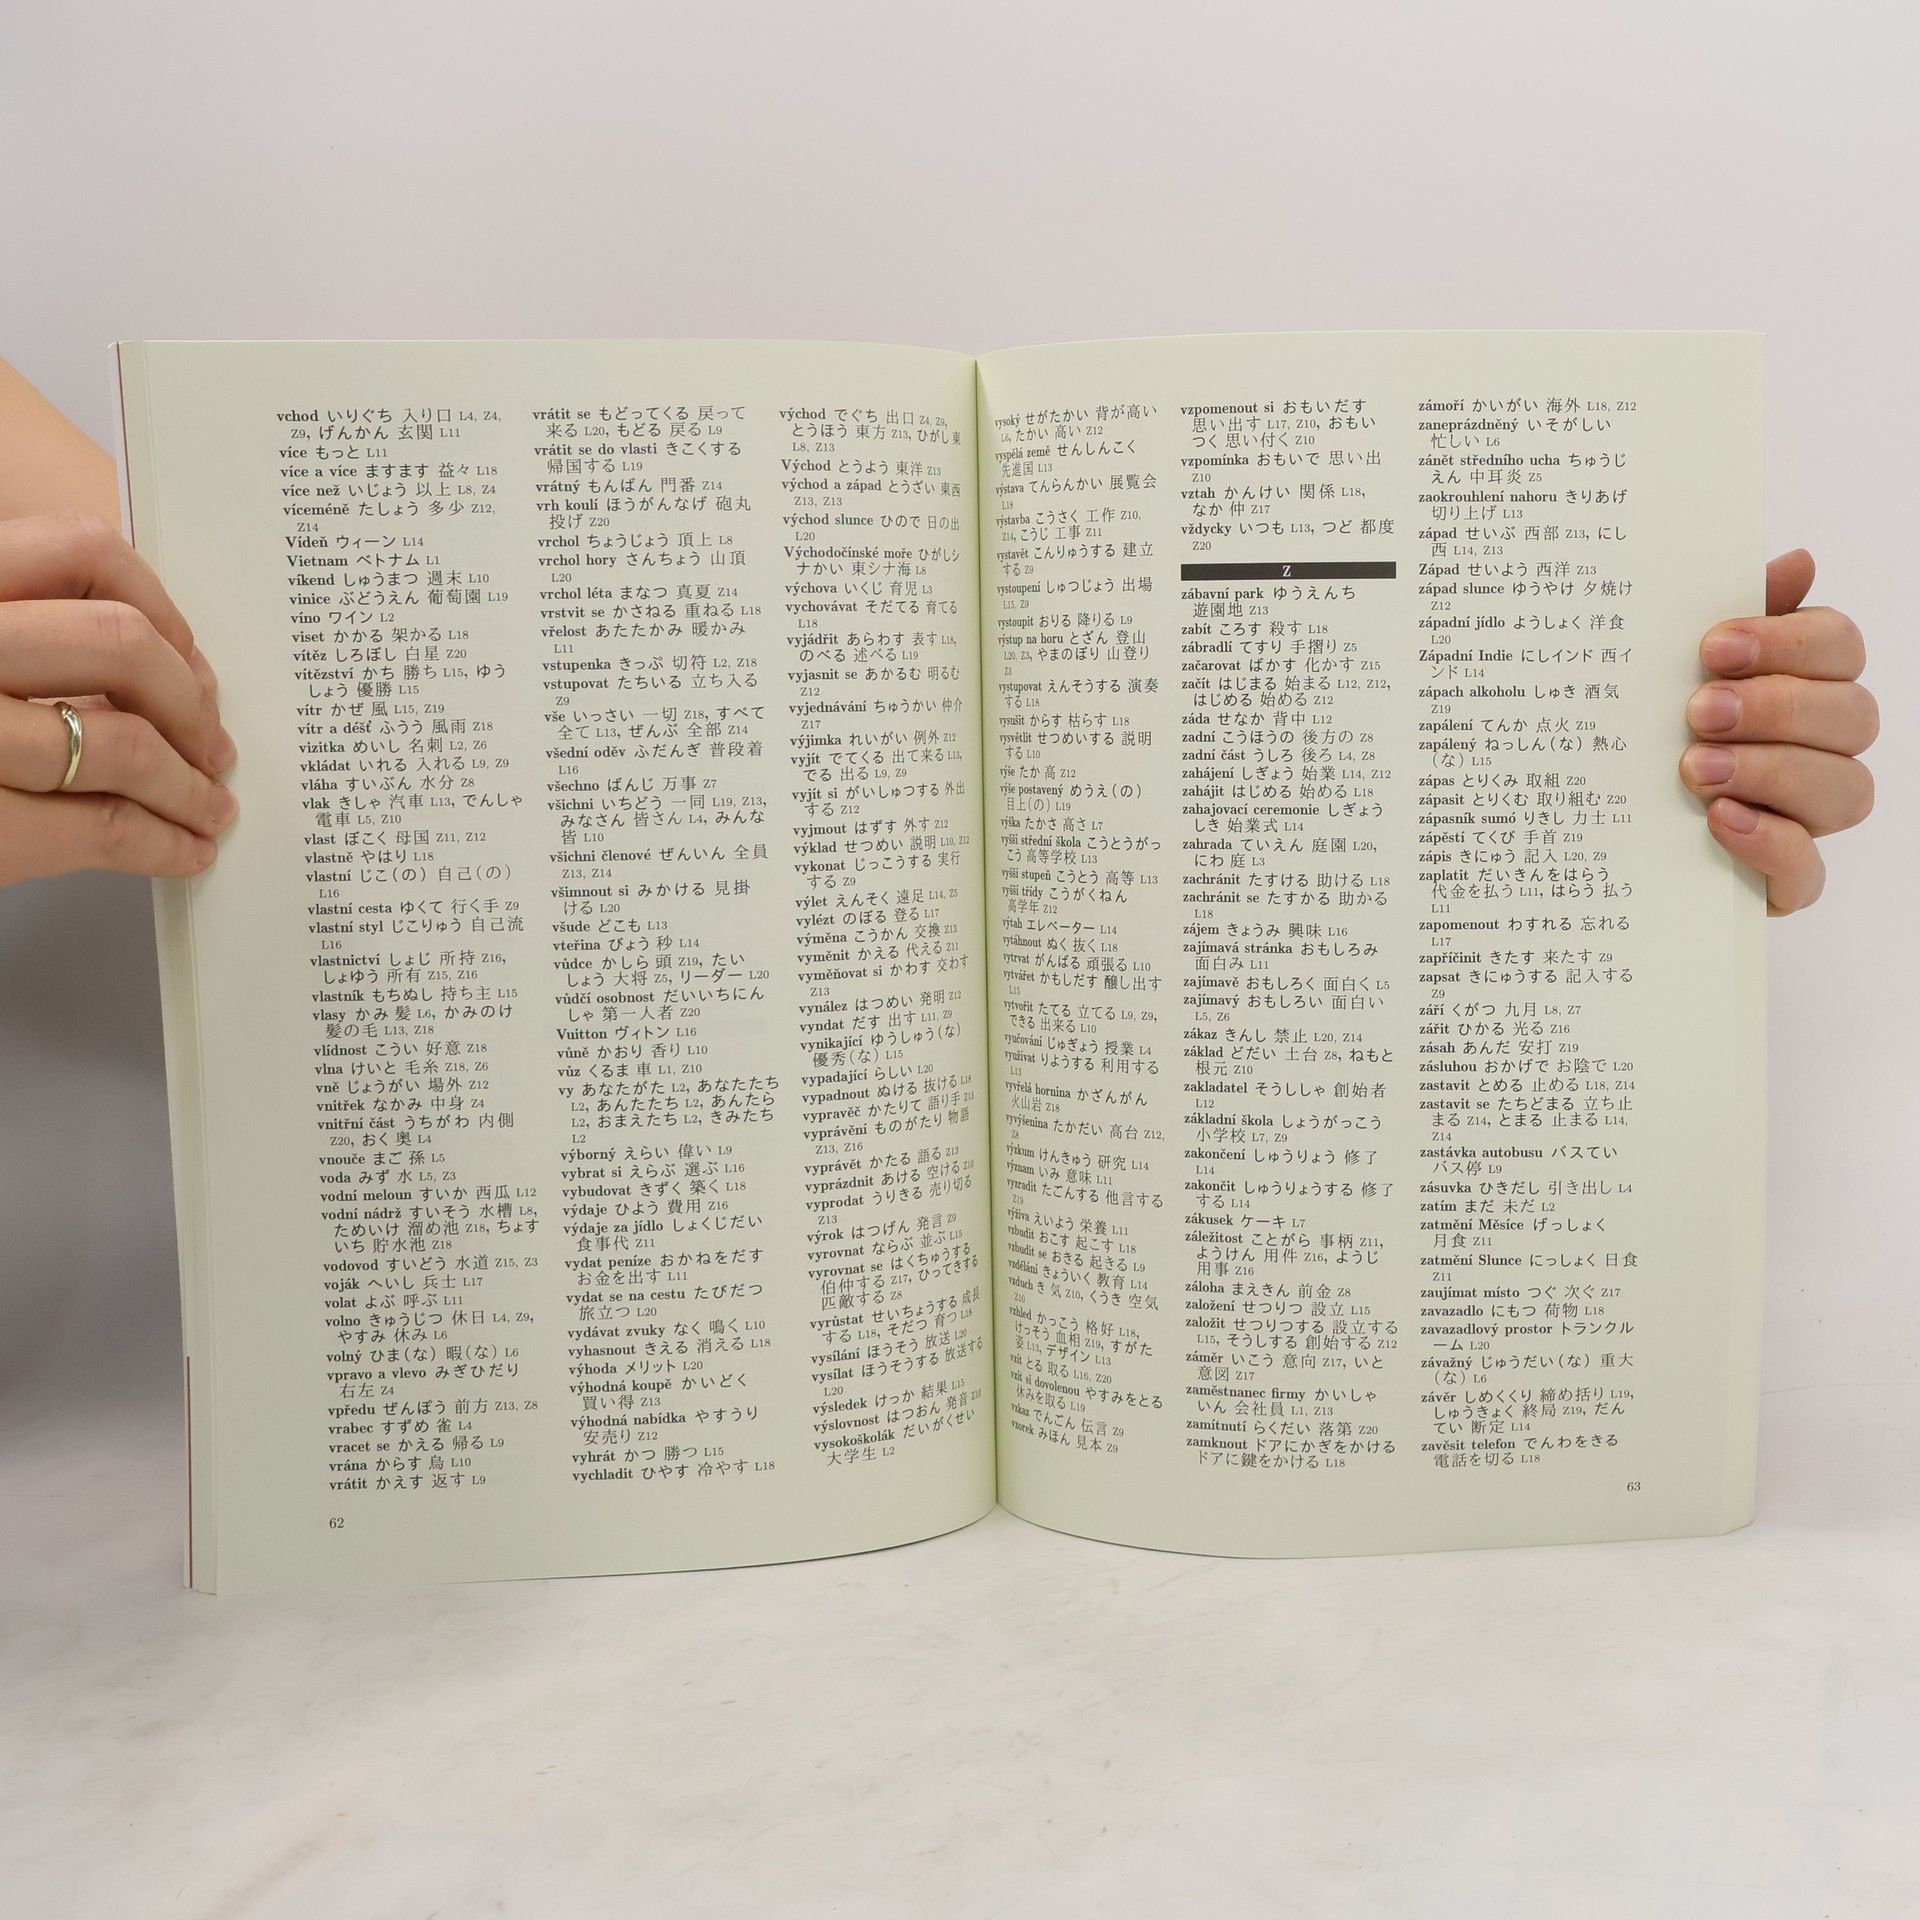 vchod いりぐち 入り口 L4, Z4,
Z9, げんかん 玄関 L11
více もっと L11
více a více ますます 益々 L18
více než いじょう 以上 L8, Z4
víceméně たしょう 多少 Z12,
Z14
Vídeň ウィーン L14
Vietnam ベトナム L1
víkend しゅうまつ 週末 L10
vinice ぶどうえん 葡萄園 L19
víno ワイン L2
viset かかる 架かる L18
vítěz しろぼし 白星 Z20
vítězství かち 勝ち L15, ゆう
しょう 優勝 L15
vítr かぜ 風 L15, Z19
vítr a déšť ふうう 風雨 Z18
vizitka めいし 名刺 L2, Z6
vkládat いれる 入れる L9, Z9
vláha すいぶん 水分 Z8
vlak きしゃ 汽車 L13, でんしゃ
電車 L5, Z10
vlast ぼこく 母国 Z11, Z12
vlastně やはり L18
vlastní じこ(の) 自己(の)
L16
vlastní cesta ゆくて 行く手 Z9
vlastní styl じこりゅう 自己流
L16
vlastnictví しょじ 所持 Z16,
しょゆう 所有 Z15, Z16
vlastník もちぬし 持ち主 L15
vlasy かみ 髪 L6, かみのけ
髪の毛 L13, Z18
vlídnost こうい 好意 Z18
vlna けいと 毛糸 Z18, Z6
vně じょうがい 場外 Z12
vnitřek なかみ 中身 Z4
vnitřní část うちがわ 内側
Z20, おく 奥 L4
vnouče まご 孫 L5
voda みず 水 L5, Z3
vodní meloun すいか 西瓜 L12
vodní nádrž すいそう 水槽 L8,
ためいけ 溜め池 Z18, ちょす
いち 貯水池 Z18
vodovod すいどう 水道 Z15, Z3
voják へいし 兵士 L17
volat よぶ 呼ぶ L11
volno きゅうじつ 休日 L4, Z9,
やすみ 休み L6
volný ひま(な) 暇(な) L6
vpravo a vlevo みぎひだり
右左 Z4
vpředu ぜんぽう 前方 Z13, Z8
vrabec すずめ 雀 L4
vracet se かえる 帰る L9
vrána からす 烏 L10
vrátit かえす 返す L9
vrátit se もどってくる 戻って
来る L20, もどる 戻る L9
vrátit se do vlasti きこくする
帰国する L19
vrátný もんばん 門番 Z14
vrh koulí ほうがんなげ 砲丸
投げ Z20
vrchol ちょうじょう 頂上 L8
vrchol hory さんちょう 山頂
L20
vrchol léta まなつ 真夏 Z14
vrstvit se かさねる 重ねる L18
vřelost あたたかみ 暖かみ
L11
vstupenka きっぷ 切符 L2, Z18
vstupovat たちいる 立ち入る
Z9
vše いっさい 一切 Z18, すべて
全て L13, ぜんぶ 全部 Z14
všední oděv ふだんぎ 普段着
L16
všechno ばんじ 万事 Z7
všichni いちどう 一同 L19, Z13,
みなさん 皆さん L4, みんな
皆 L10
všichni členové ぜんいん 全員
Z13, Z14
všimnout si みかける 見掛
ける L20
všude どこも L13
vteřina びょう 秒 L14
vůdce かしら 頭 Z19, たい
しょう 大将 Z5, リーダー L20
vůdčí osobnost だいいちにん
しゃ 第一人者 Z20
Vuitton ヴィトン L16
vůně かおり 香り L10
vůz くるま 車 L1, Z10
vy あなたがた L2, あなたたち
L2, あんたたち L2, あんたら
L2, おまえたち L2, きみたち
L2
výborný えらい 偉い L9
vybrat si えらぶ 選ぶ L16
vybudovat きずく 築く L18
výdaje ひよう 費用 Z16
výdaje za jídlo しょくじだい
食事代 Z11
vydat peníze おかねをだす
お金を出す L11
vydat se na cestu たびだつ
旅立つ L20
vydávat zvuky なく 鳴く L10
vyhasnout きえる 消える L18
výhoda メリット L20
výhodná koupě かいどく
買い得 Z13
výhodná nabídka やすうり
安売り Z12
vyhrát かつ 勝つ L15
vychladit ひやす 冷やす L18
východ でぐち 出口 Z4, Z9,
とうほう 東方 Z13, ひがし 東
L8, Z13
Východ とうよう 東洋 Z13
východ a západ とうざい 東西
Z13, Z13
východ slunce ひので 日の出
L20
Východočínské moře ひがしシ
ナかい 東シナ海 L8
výchova いくじ 育児 L3
vychovávat そだてる 育てる
L18
vyjádřit あらわす 表す L18,
のべる 述べる L19
vyjasnit se あかるむ 明るむ
Z12
vyjednávání ちゅうかい 仲介
Z17
výjimka れいがい 例外 Z12
vyjít でてくる 出て来る L13,
でる 出る L9, Z9
vyjít si がいしゅつする 外出
する Z12
vyjmout はずす 外す Z12
výklad せつめい 説明 L10, Z12
vykonat じっこうする 実行
する Z9
výlet えんそく 遠足 L14, Z5
vylézt のぼる 登る L17
výměna こうかん 交換 Z13
vyměnit かえる 代える Z11
vyměňovat si かわす 交わす
Z13
vynález はつめい 発明 Z12
vyndat だす 出す L11, Z9
vynikající ゆうしゅう(な)
優秀(な) L15
vypadající らしい L20
vypadnout ぬける 抜ける L18
vypravěč かたりて 語り手 Z13
vyprávění ものがたり 物語
Z13, Z16
vyprávět かたる 語る Z13
vyprázdnit あける 空ける Z10
vyprodat うりきる 売り切る
Z13
výrok はつげん 発言 Z9
vyrovnat ならぶ 並ぶ L15
vyrovnat se はくちゅうする
伯仲する Z17, ひってきする
匹敵する Z8
vyrůstat せいちょうする 成長
する L18, そだつ 育つ L18
vysílání ほうそう 放送 L20
vysílat ほうそうする 放送する
L20
výsledek けっか 結果 L15
výslovnost はつおん 発音 Z10
vysokoškolák だいがくせい
大学生 L2
62
vysoký せがたかい 背が高い
L6, たかい 高い Z12
vyspělá země せんしんこく
先進国 L13
výstava てんらんかい 展覧会
L18
výstavba こうさく 工作 Z10,
Z14, こうじ 工事 Z11
vystavět こんりゅうする 建立
する Z9
vystoupení しゅつじょう 出場
L15, Z9
vystoupit おりる 降りる L9
výstup na horu とざん 登山
L20, Z3, やまのぼり 山登り
Z3
vystupovat えんそうする 演奏
する L18
vysušit からす 枯らす L18
vysvětlit せつめいする 説明
する L10
výše たか 高 Z12
výše postavený めうえ(の)
目上(の) L19
výška たかさ 高さ L7
vyšší střední škola こうとうがっ
こう 高等学校 L13
vyšší stupeň こうとう 高等 L13
vyšší třídy こうがくねん
高学年 Z12
výtah エレベーター L14
vytáhnout ぬく 抜く L18
vytrvat がんばる 頑張る L10
vytvářet かもしだす 醸し出す
L15
vytvořit たてる 立てる L9, Z9,
できる 出来る L10
vyučování じゅぎょう 授業 L4
využívat りようする 利用する
L13
vyvřelá hornina かざんがん
火山岩 Z18
vyvýšenina たかだい 高台 Z12,
Z8
výzkum けんきゅう 研究 L14
význam いみ 意味 L11
vyzradit たごんする 他言する
Z19
výživa えいよう 栄養 L11
vzbudit おこす 起こす L18
vzbudit se おきる 起きる L9
vzdělání きょういく 教育 L14
vzduch き 気 Z10, くうき 空気
Z10
vzhled かっこう 格好 L18,
けっそう 血相 Z19, すがた
姿 L13, デザイン L13
vzít とる 取る L16, Z20
vzít si dovolenou やすみをとる
休みを取る L19
vzkaz でんごん 伝言 Z9
vzorek みほん 見本 Z9
vzpomenout si おもいだす
思い出す L17, Z10, おもい
つく 思い付く Z10
vzpomínka おもいで 思い出
Z10
vztah かんけい 関係 L18,
なか 仲 Z17
vždycky いつも L13, つど 都度
Z20
Z
zábavní park ゆうえんち
遊園地 Z13
zabít ころす 殺す L18
zábradlí てすり 手摺り Z5
začarovat ばかす 化かす Z15
začít はじまる 始まる L12, Z12,
はじめる 始める Z12
záda せなか 背中 L12
zadní こうほうの 後方の Z8
zadní část うしろ 後ろ L4, Z8
zahájení しぎょう 始業 L14, Z12
zahájit はじめる 始める L18
zahajovací ceremonie しぎょう
しき 始業式 L14
zahrada ていえん 庭園 L20,
にわ 庭 L3
zachránit たすける 助ける L18
zachránit se たすかる 助かる
L18
zájem きょうみ 興味 L16
zajímavá stránka おもしろみ
面白み L11
zajímavě おもしろく 面白く L5
zajímavý おもしろい 面白い
L5, Z6
zákaz きんし 禁止 L20, Z14
základ どだい 土台 Z8, ねもと
根元 Z10
zakladatel そうししゃ 創始者
L12
základní škola しょうがっこう
小学校 L7, Z9
zakončení しゅうりょう 修了
L14
zakončit しゅうりょうする 修了
する L14
zákusek ケーキ L7
záležitost ことがら 事柄 Z11,
ようけん 用件 Z16, ようじ
用事 Z16
záloha まえきん 前金 Z8
založení せつりつ 設立 L15
založit せつりつする 設立する
L15, そうしする 創始する Z12
záměr いこう 意向 Z17, いと
意図 Z17
zaměstnanec firmy かいしゃ
いん 会社員 L1, Z13
zamítnutí らくだい 落第 Z20
zamknout ドアにかぎをかける
ドアに鍵をかける L18
zámoří かいがい 海外 L18, Z12
zaneprázdněný いそがしい
忙しい L6
zánět středního ucha ちゅうじ
えん 中耳炎 Z5
zaokrouhlení nahoru きりあげ
切り上げ L13
západ せいぶ 西部 Z13, にし
西 L14, Z13
Západ せいよう 西洋 Z13
západ slunce ゆうやけ 夕焼け
Z12
západní jídlo ようしょく 洋食
L20
Západní Indie にしインド 西イ
ンド L14
zápach alkoholu しゅき 酒気
Z19
zapálení てんか 点火 Z19
zapálený ねっしん(な) 熱心
(な) L15
zápas とりくみ 取組 Z20
zápasit とりくむ 取り組む Z20
zápasník sumó りきし 力士 L11
zápěstí てくび 手首 Z19
zápis きにゅう 記入 L20, Z9
zaplatit だいきんをはらう
代金を払う L11, はらう 払う
L11
zapomenout わすれる 忘れる
L17
zapříčinit きたす 来たす Z9
zapsat きにゅうする 記入する
Z9
září くがつ 九月 L8, Z7
zářit ひかる 光る Z16
zásah あんだ 安打 Z19
zásluhou おかげで お陰で L20
zastavit とめる 止める L18, Z14
zastavit se たちどまる 立ち止
まる Z14, とまる 止まる L14,
Z14
zastávka autobusu バスてい
バス停 L9
zásuvka ひきだし 引き出し L4
zatím まだ 未だ L2
zatmění Měsíce げっしょく
月食 Z11
zatmění Slunce にっしょく 日食
Z11
zaujímat místo つぐ 次ぐ Z17
zavazadlo にもつ 荷物 L18
zavazadlový prostor トランクル
ーム L20
závažný じゅうだい(な) 重大
(な) L6
závěr しめくくり 締め括り L19,
しゅうきょく 終局 Z19, だん
てい 断定 L14
zavěsit telefon でんわをきる
電話を切る L18
63